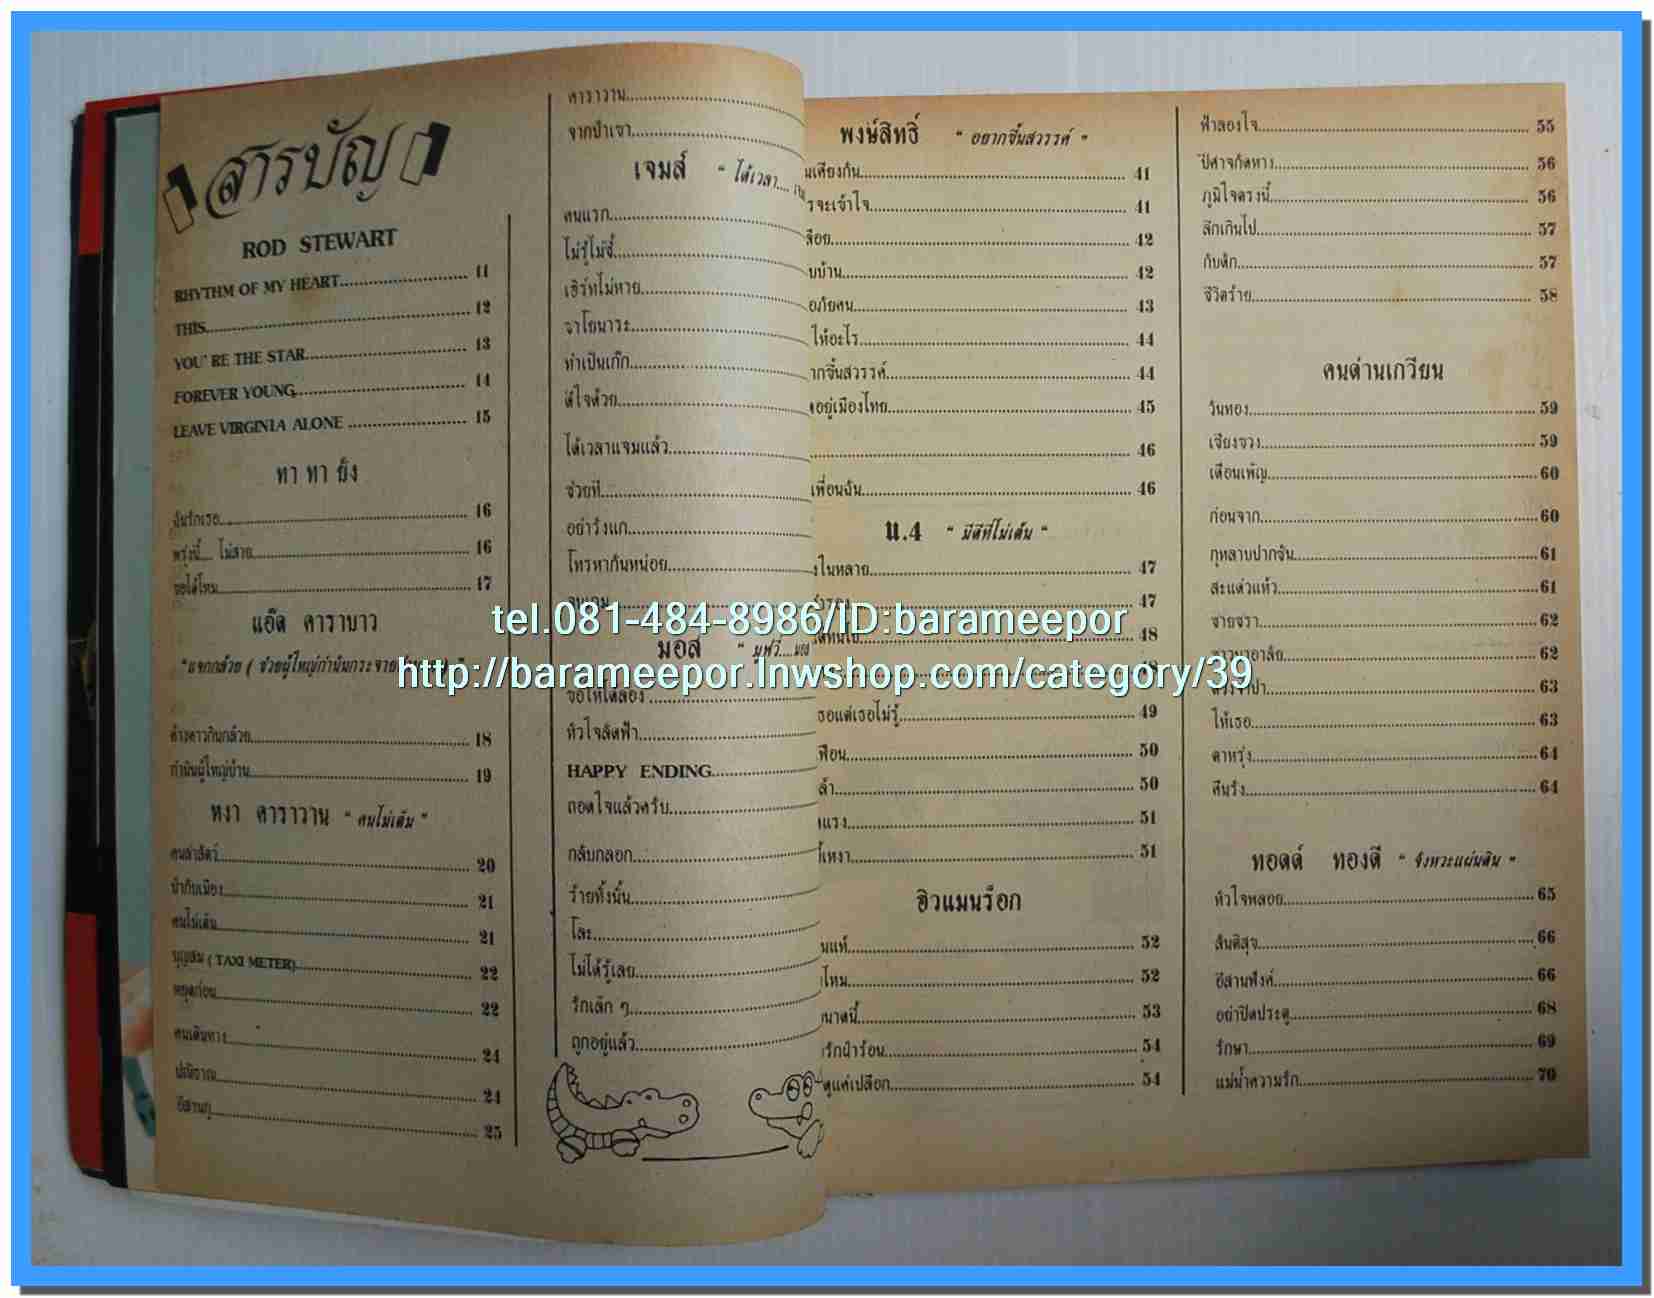 สารบัญ
ROD STEWART
RHYTHM OF MY HEART 11
THIS 12
YOU' RE THE STAR 13
FOREVER YOUNG 14
LEAVE VIRGINIA ALONE 15
ทา ทา ยัง
ฉันรักเธอ 16
พรุ่งนี้.... ไม่สาย 16
ขอได้ไหม 17
แอ๊ด คาราบาว
"แจกกล้วย ( ช่วยผู้ใหญ่กำนันกระจาย
ค้างคาวกินกล้วย 18
กำนันผู้ใหญ่บ้าน 19
หงา คาราวาน " คนไม่เต็ม "
คนล่าสัตว์ 20
ป่ากับเมือง 21
คนไม่เต็ม 21
บุญสม ( TAXI METER) 22
หยุดก่อน 22
คนเดินทาง 24
ปณิธาณ 24
อีสานกู 25
คาราวาน
จากป่าเขา
เจมส์ " ได้เวลา....
คนแรก
ไม่รู้ไม่ชี้
เฮิร์ทไม่หาย
ซาโยนาระ
ทำเป็นเก๊ก
ดีใจด้วย
ได้เวลาแจมแล้ว
ช่วยที
อย่ารังแก
โทรหากันหน่อย
มอส
ขอให้ได้ลอง
หัวใจลัดฟ้า
HAPPY ENDING
ถอดใจแล้วครับ
กลับกลอก
ร้ายทั้งนั้น
โละ
ไม่ได้รู้เลย
รักเล็ก ๆ
ถูกอยู่แล้ว
พงษ์สิทธิ์ " อยากขึ้นสวรรค์ "
มเคียงกัน 41
รจะเข้าใจ 41
ลือย 42
บบ้าน 42
อภัยคน 43
ให้อะไร 44
ากขึ้นสวรรค์ 44
อยู่เมืองไทย 45
46
เพื่อนฉัน 46
น.4 " มีดีที่ไม่เต้น "
งในหลาย 47
47
48
ธอแต่เธอไม่รู้ 49
ฟือน 50
ล้า 50
แรง 51
เหงา 51
ฮิวแมนร็อก
นแท้ 52
ไหม 52
ขนาดนี้ 53
รักฝ่าร้อน 54
ดูแค่เปลือก 54
ฟ้าลองใจ 55
ปีศาจกัดหาง 56
ภูมิใจตรงนี้ 56
ลึกเกินไป 57
กับดัก 57
ชีวิตร้าย 58
คนด่านเกวียน
วันทอง 59
เชียงจวง 59
เดือนเพ็ญ 60
ก่อนจาก 60
กุหลาบปากซัน 61
สะแด่วแห้ว 61
ชายชรา 62
62
63
ให้เธอ 63
ตาหรุ่ง 64
คืนรัง 64
ทอดด์ ทองดี " จังหวะแผ่นดิน "
หัวใจพลอย 65
สันติสุข 66
อีสานฟังค์ 66
อย่าปิดประตู 68
รักษา 69
แม่น้ำความรัก 70
tel.081-484-8986/ID:barameepor
http://barameepor.lnwshop.com/category/39